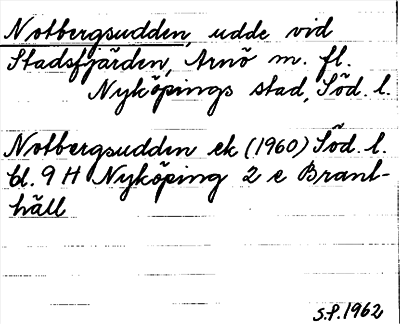 Notbergsudden, udde vid
Stadsfjärden, Arnö m. fl.
Nyköpings stad, Söd. l.
Notbergsudden ek (1960) Söd. l.
bl. 9 H Nyköping 2 e Brant-
häll
S.P. 1962